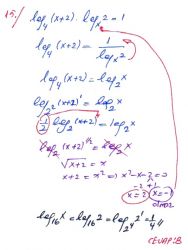 15.) log₄(x+2) · logₓ2 = 1
log₄(x+2) = 1 / logₓ2
log₄(x+2) = log₂x
log₂²(x+2)¹ = log₂x
1/2 log₂(x+2)¹ = log₂x
log₂(x+2)^(1/2) = log₂x
√(x+2) = x
x+2 = x² ⇒ x²-x-2=0
-2 +1
x=2 x=-1
olmaz
log₁₆x = log₁₆2 = log₂⁴2¹ = 1/4 //
CEVAP:B